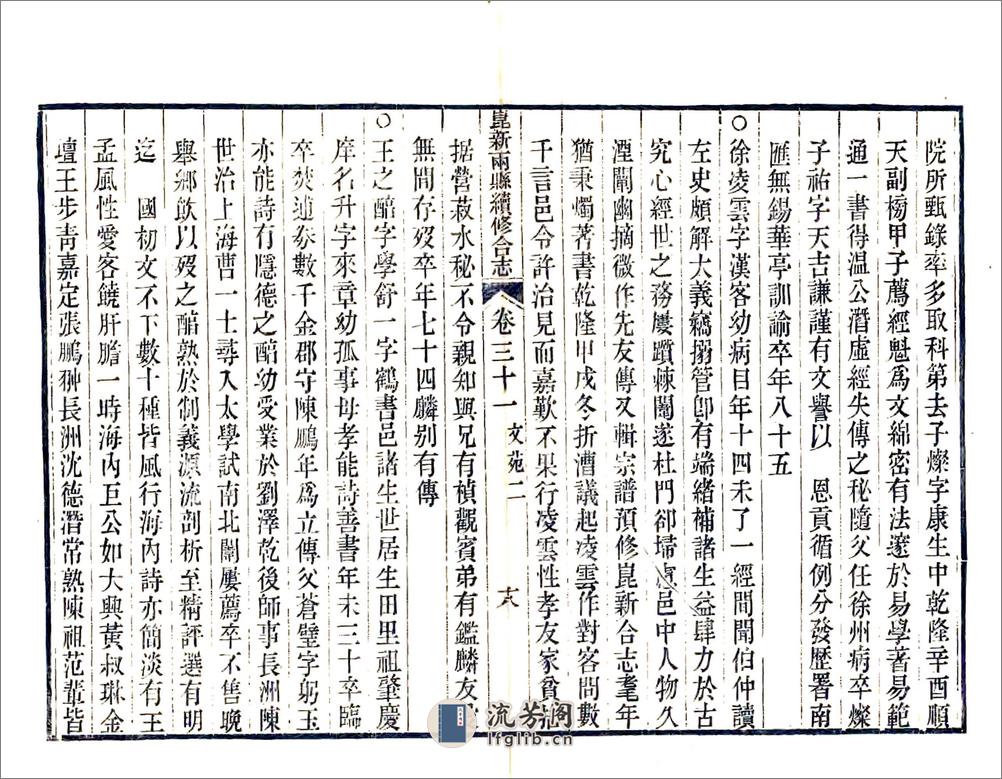 院所甄錄率多取科第去子燦字康生中乾隆辛酉順
天副榜甲子薦經魁爲文綿密有法邃於易學著易範
通一書得温公潛虛經失傳之秘隨父任徐州病卒燦
子祐字天吉謙謹有文譽以 恩貢循例分發歷署南
匯無錫華亭訓諭卒年八十五
○徐凌雲字漢客幼病目年十四未了一經間聞伯仲讀
左史頗解大義竊搦管卽有端緒補諸生益肆力於古
究心經世之務屢躓棘闈遂杜門卻埽慮邑中人物久
湮闡幽摘微作先友傳又輯宗譜預修崑新合志耄年
猶秉燭著書乾隆甲戌冬折漕議起凌雲作對客問數
千言邑令許治見而嘉歎不果行凌雲性孝友家貧
据營菽水秘不令親知與兄有禎觀賓弟有鑑麟友
無間存歿卒年七十四麟别有傳
○王之醅字學舒一字鶴書邑諸生世居生田里祖肇慶
庠名升字來章幼孤事母孝能詩善書年未三十卒臨
卒焚逋券數千金郡守陳鵬年爲立傳父蒼璧字躬玉
亦能詩有隱德之醅幼受業於劉澤乾後師事長洲陳
世治上海曹一士尋入太學試南北闈屢薦卒不售晚
舉鄉飮以歿之醅熟於制義源流剖析至精評選有明
迄 國初文不下數十種皆風行海內詩亦簡淡有王
孟風性愛客饒肝膽一時海內巨公如大興黃叔琳金
壇王步青嘉定張鵬翀長洲沈德潛常熟陳祖范輩皆
崑新兩縣續修合志
卷三十一 文苑二
十八
流芳阁
lfglib.cn